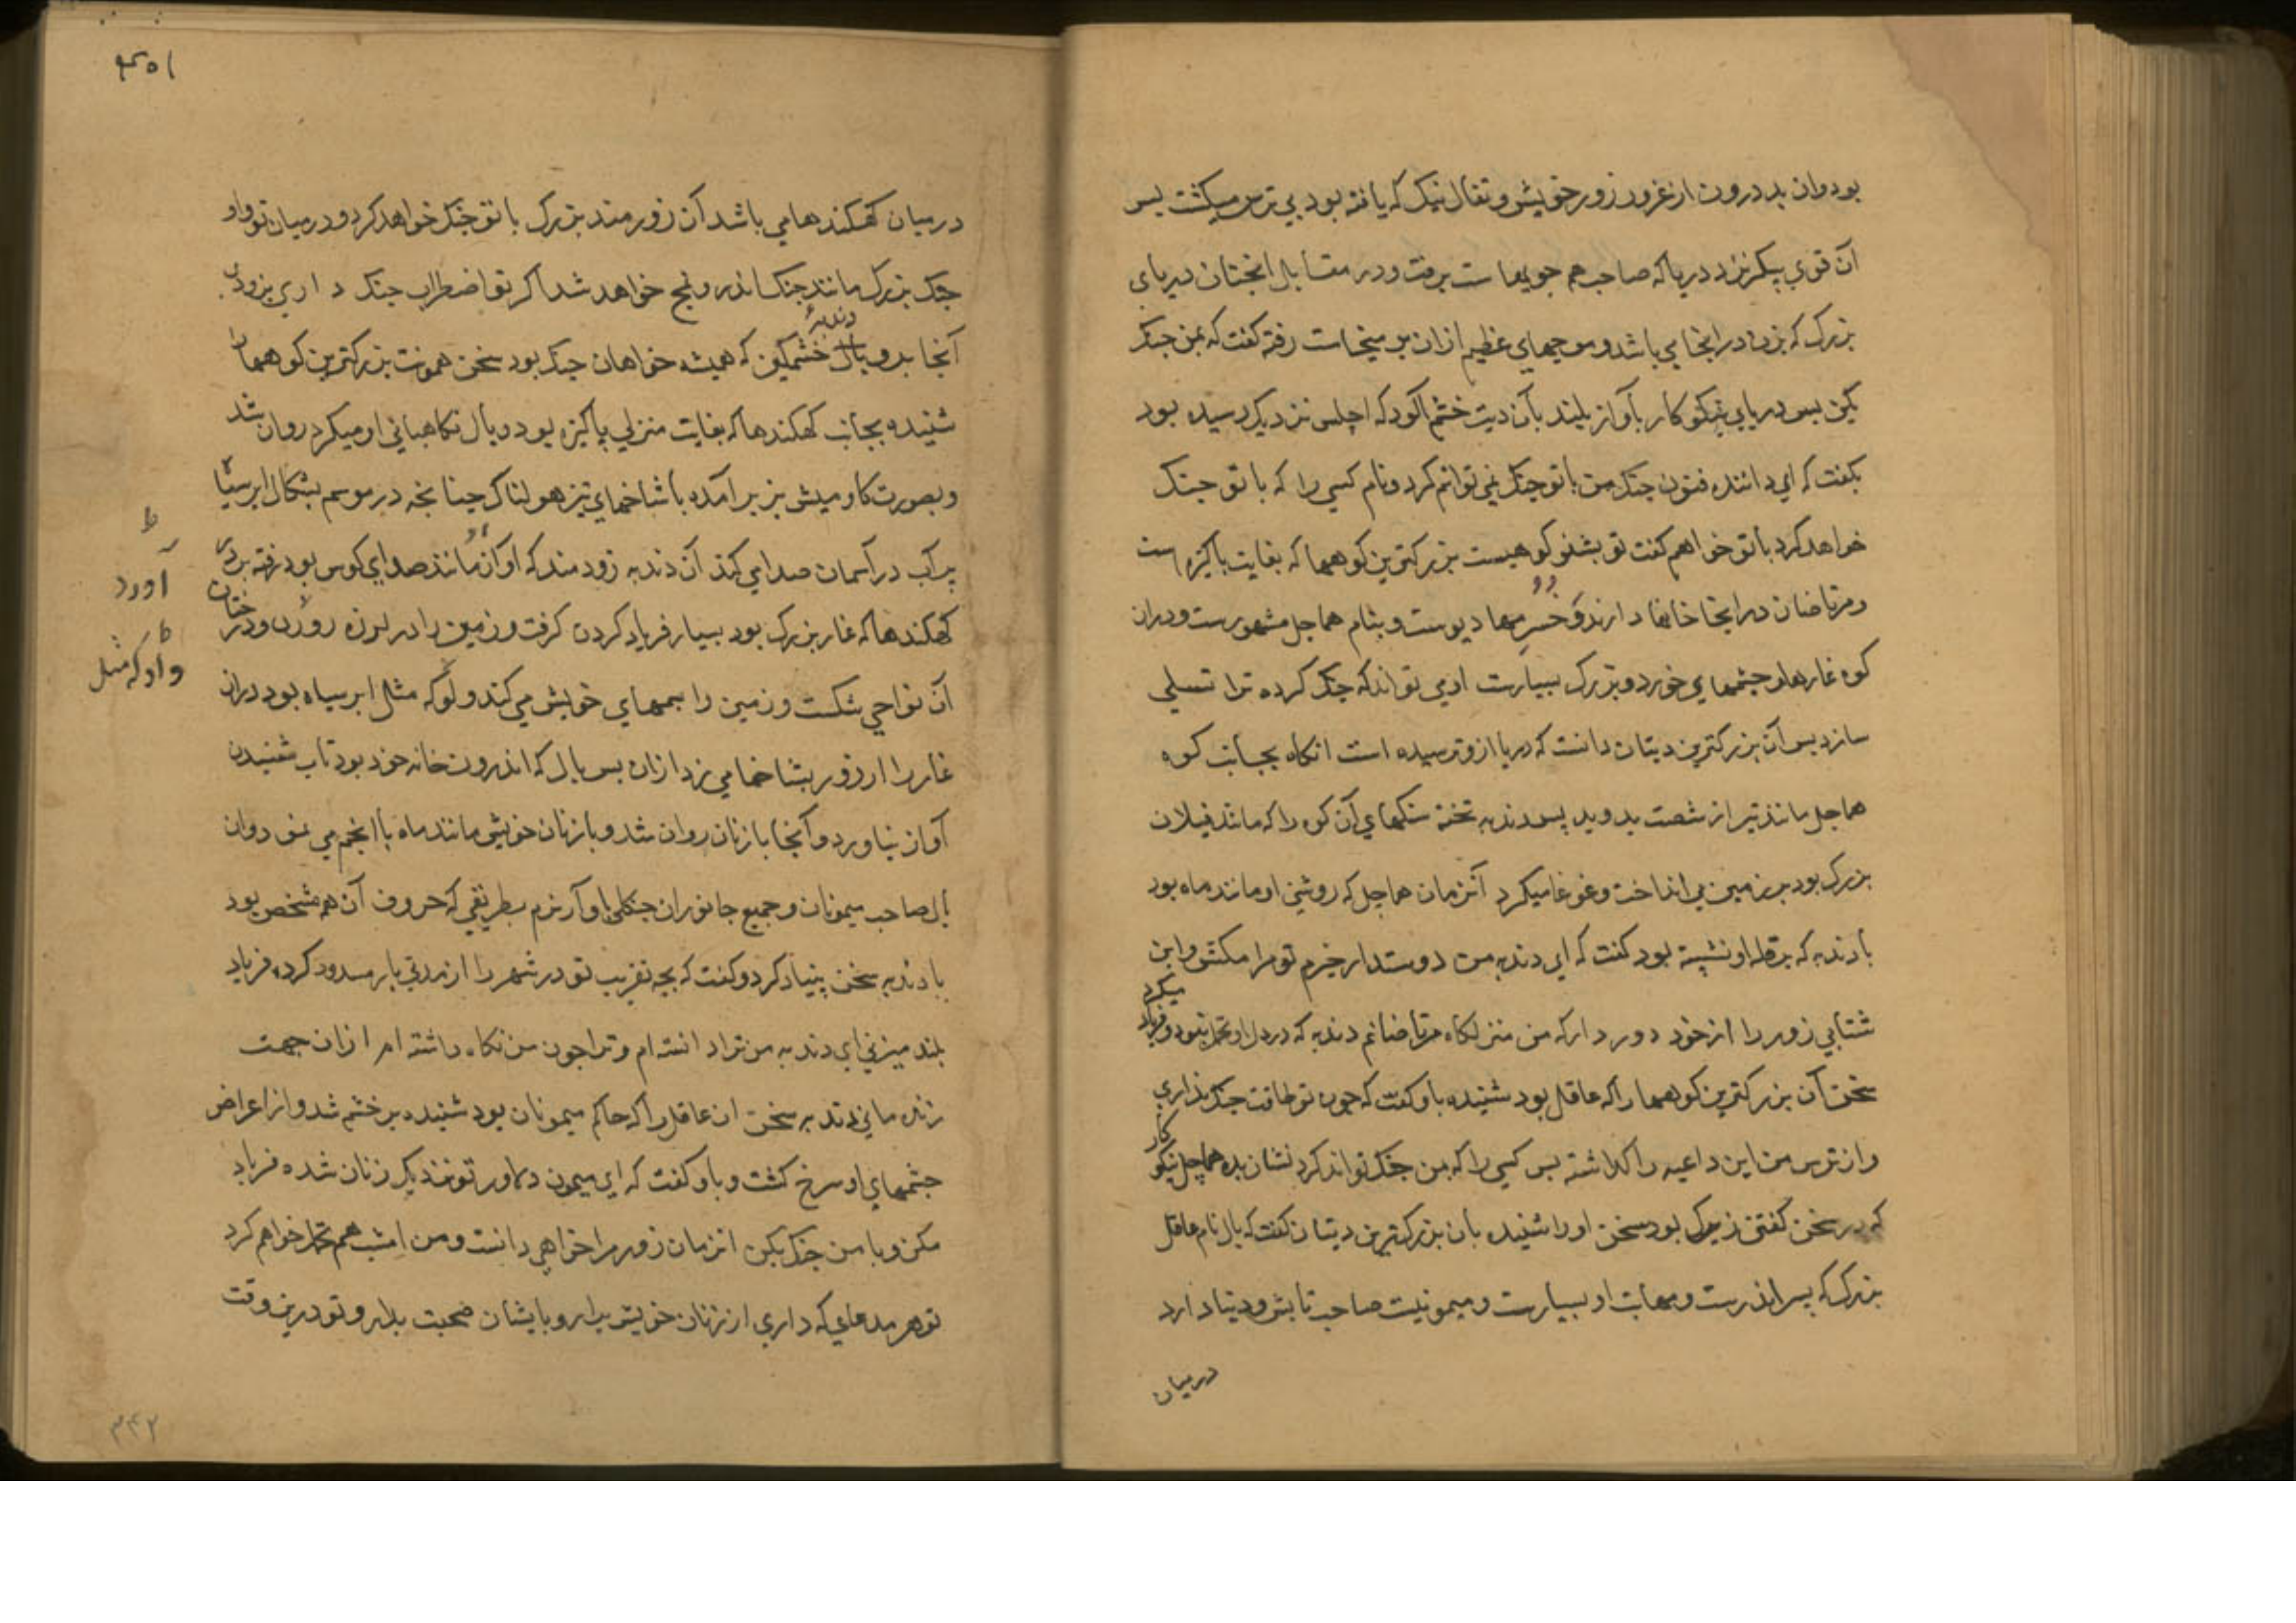 بود وان بد درون از غرور زور خویش و تفال نیک که یافته بود بی ترس میکشت پس
آن قوی پیکر نزد دریا که صاحب هم جویها ست برفت و در مقابل انچنان دریای
بزرک که بزد در انجا می باشد و موجهای عظیم ازان بر میخاست رفته کفت که بمن جنک
بکن پس دریای نیکو کار بآواز بلند بآن دیت خشم آلود که اجلس نزدیک رسیده بود
بکفت که ای داننده فنون جنک من با تو جنک نمی توانم کرد و نام کسی را که با تو جنک
خواهد کرد با تو خواهم کفت تو بشنو کوهیست بزرکترین کوهها که بغایت پاکیزه است
و مرتاضان در انجا خانها دارند و خسر مهادیوست و بنام هماجل مشهورست و دران
کوه غارها و چشمهای خورد و بزرک بسیارست او می تواند که جنک کرده ترا تسلی
سازد پس آن بزرکترین دیتان دانست که دریا ازو ترسیده است انکاه بجانب کوه
هماجل مانند تیر از شصت بدوید پس دندبه تخته سنکهای آن کوه را که مانند فیلان
بزرک بود بر زمین می انداخت و غوغا میکرد آنزمان هماجل که روشنی او مانند ماه بود
با دندبه که بر قله او نشسته بود کفت که ای دندبه من دوستدار خیرم تو مرا مکش و این
شتابی زور را از خود دور دار که من منزلکاه مرتاضانم دندبه که در دل او تحمل نبود و فریاد میکرد
سخن آن بزرکترین کوهها را که عاقل بود شنیده باو کفت که چون تو طاقت جنک نداری
و از ترس من این داعیه را کذاشته پس کسی را که بمن جنک تواند کرد نشان بده هماجل نیکو کار
که در سخن کفتن زیرک بود سخن او را شنیده بان بزرکترین دیتان کفت که بال نام عاقل
بزرک که پسر اندرست و مهابت او بسیارست و میمونیست صاحب تابش و در دنیا دارد
درمیان
۱۵۹
درمیان کهکندها می باشد آن زورمند بزرک با تو جنک خواهد کرد و درمیان تو و او
جنک بزرک مانند جنک اندر و نمج خواهد شد اکر تو اضطراب جنک داری بزودی
آنجا برو دندبه خشمکین که همیشه خواهان جنک بود سخن همونت بزرکترین کوهها را
شنیده بجانب کهکندها که بغایت منزلی پاکیزه بود و بال نکاهبانی او میکرد روان شد
و بصورت کاومیش نر برآمده با شاخهای تیز هولناک چنانچه در موسم بشکال ابر سیاه
پر آب در آسمان صدا می کند آن دندبه زورمند که آواز او مانند صدای کوس بود رفته بر در
کهکندها که غار بزرک بود بسیار فریاد کردن کرفت و زمین را در لرزه آورد و درختان
آن نواحی شکست و زمین را بسمهای خویش می کند و او که مثل ابر سیاه بود دران
غار را از زور بشاخها می زد ازان پس بال که اندرون خانه خود بود تاب شنیدن
آواز نیاورد و آنجا با زنان روان شد و با زنان خویش مانند ماه با انجم می نمود وان
بال صاحب میمونان و جمیع جانوران جنکلی باو آز نرم بطریقی که حروف آن هم مشخص بود
با دندبه سخن بنیاد کرد و کفت که بچه تقریب تو در شهر را مسدود کرده فریاد
بلند میزنی ای دندبه من ترا دانسته ام و ترا چون من نکاه داشته ام ازان جهت
زنده مانی دندبه سخن ان عاقل را که حاکم میمونان بود شنیده پر خشم شد و از اعراض
چشمهای او سرخ کشت و باو کفت که ای میمون دلاور تو نزدیک زنان شده فریاد
مکن و با من جنک بکن انزمان زور مرا خواهی دانست و من امشب هم تحمل خواهم کرد
تو هر مدعای که داری از زنان خویش برار و با ایشان صحبت بدار و تو درین وقت
ظ
آورد
ظ
و او که مثل
۲۴۲